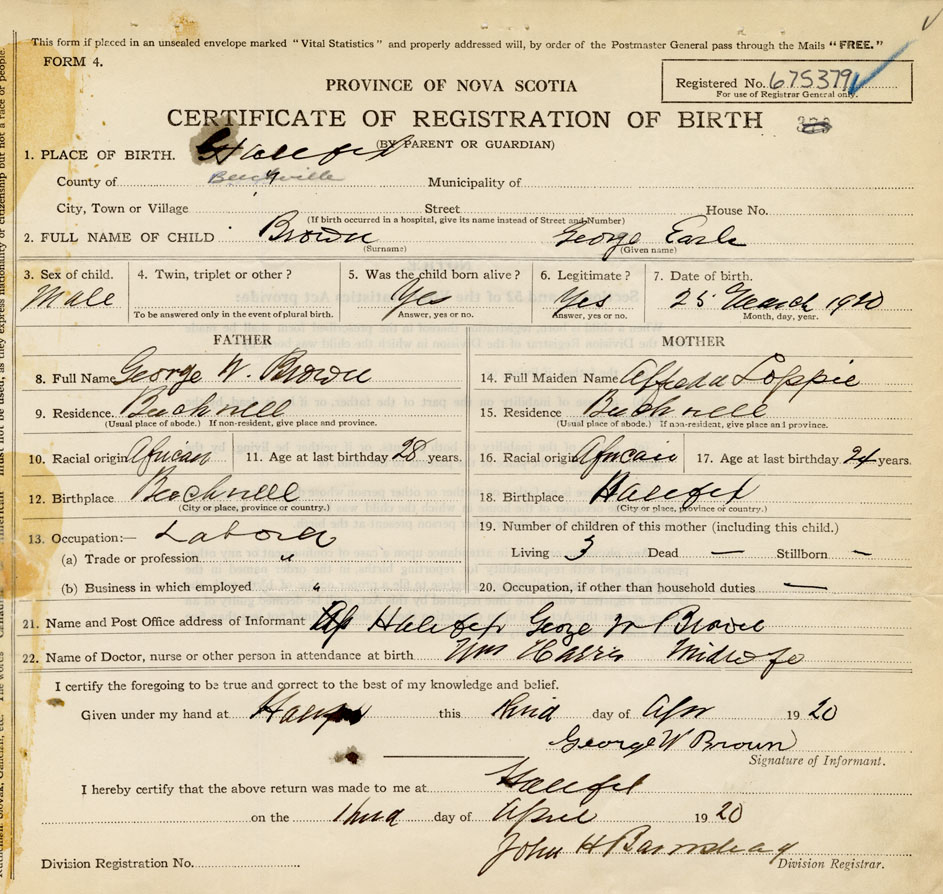 This form if placed in an unsealed envelope marked "Vital Statistics" and properly addressed will, by order of the Postmaster General pass through the Mails "FREE."
FORM 4.
PROVINCE OF NOVA SCOTIA
Registered No. 675379
For use of Registrar General only.
CERTIFICATE OF REGISTRATION OF BIRTH
(BY PARENT OR GUARDIAN)
1. PLACE OF BIRTH. Halifax
County of Beechville Municipality of
City, Town or Village Street House No.
(If birth occurred in a hospital, give its name instead of Street and Number)
2. FULL NAME OF CHILD Brown George Earle
(Surname) (Given name)
3. Sex of child. 4. Twin, triplet or other? 5. Was the child born alive? 6. Legitimate? 7. Date of birth.
Male Yes Yes 25 March 1920
To be answered only in the event of plural birth. Answer, yes or no. Answer, yes or no. Month, day, year.
FATHER
8. Full Name George W. Brown
9. Residence Beechvell
(Usual place of abode.) If non-resident, give place and province.
10. Racial origin African 11. Age at last birthday 28 years.
12. Birthplace Beechvell
(City or place, province or country.)
13. Occupation:— Laborer
(a) Trade or profession "
(b) Business in which employed "
MOTHER
14. Full Maiden Name Alfreda Loppie
15. Residence Beechvell
(Usual place of abode.) If non-resident, give place and province.
16. Racial origin African 17. Age at last birthday 24 years.
18. Birthplace Halifax
(City or place, province or country.)
19. Number of children of this mother (including this child.)
Living 3 Dead — Stillborn —
20. Occupation, if other than household duties —
21. Name and Post Office address of Informant Halifax George W Brown
22. Name of Doctor, nurse or other person in attendance at birth Mrs Harris Midwife
I certify the foregoing to be true and correct to the best of my knowledge and belief.
Given under my hand at Halifax this third day of Apr 1920
George W Brown
Signature of Informant.
I hereby certify that the above return was made to me at Halifax
on the third day of April 1920
John H Barnstead
Division Registration No. Division Registrar.